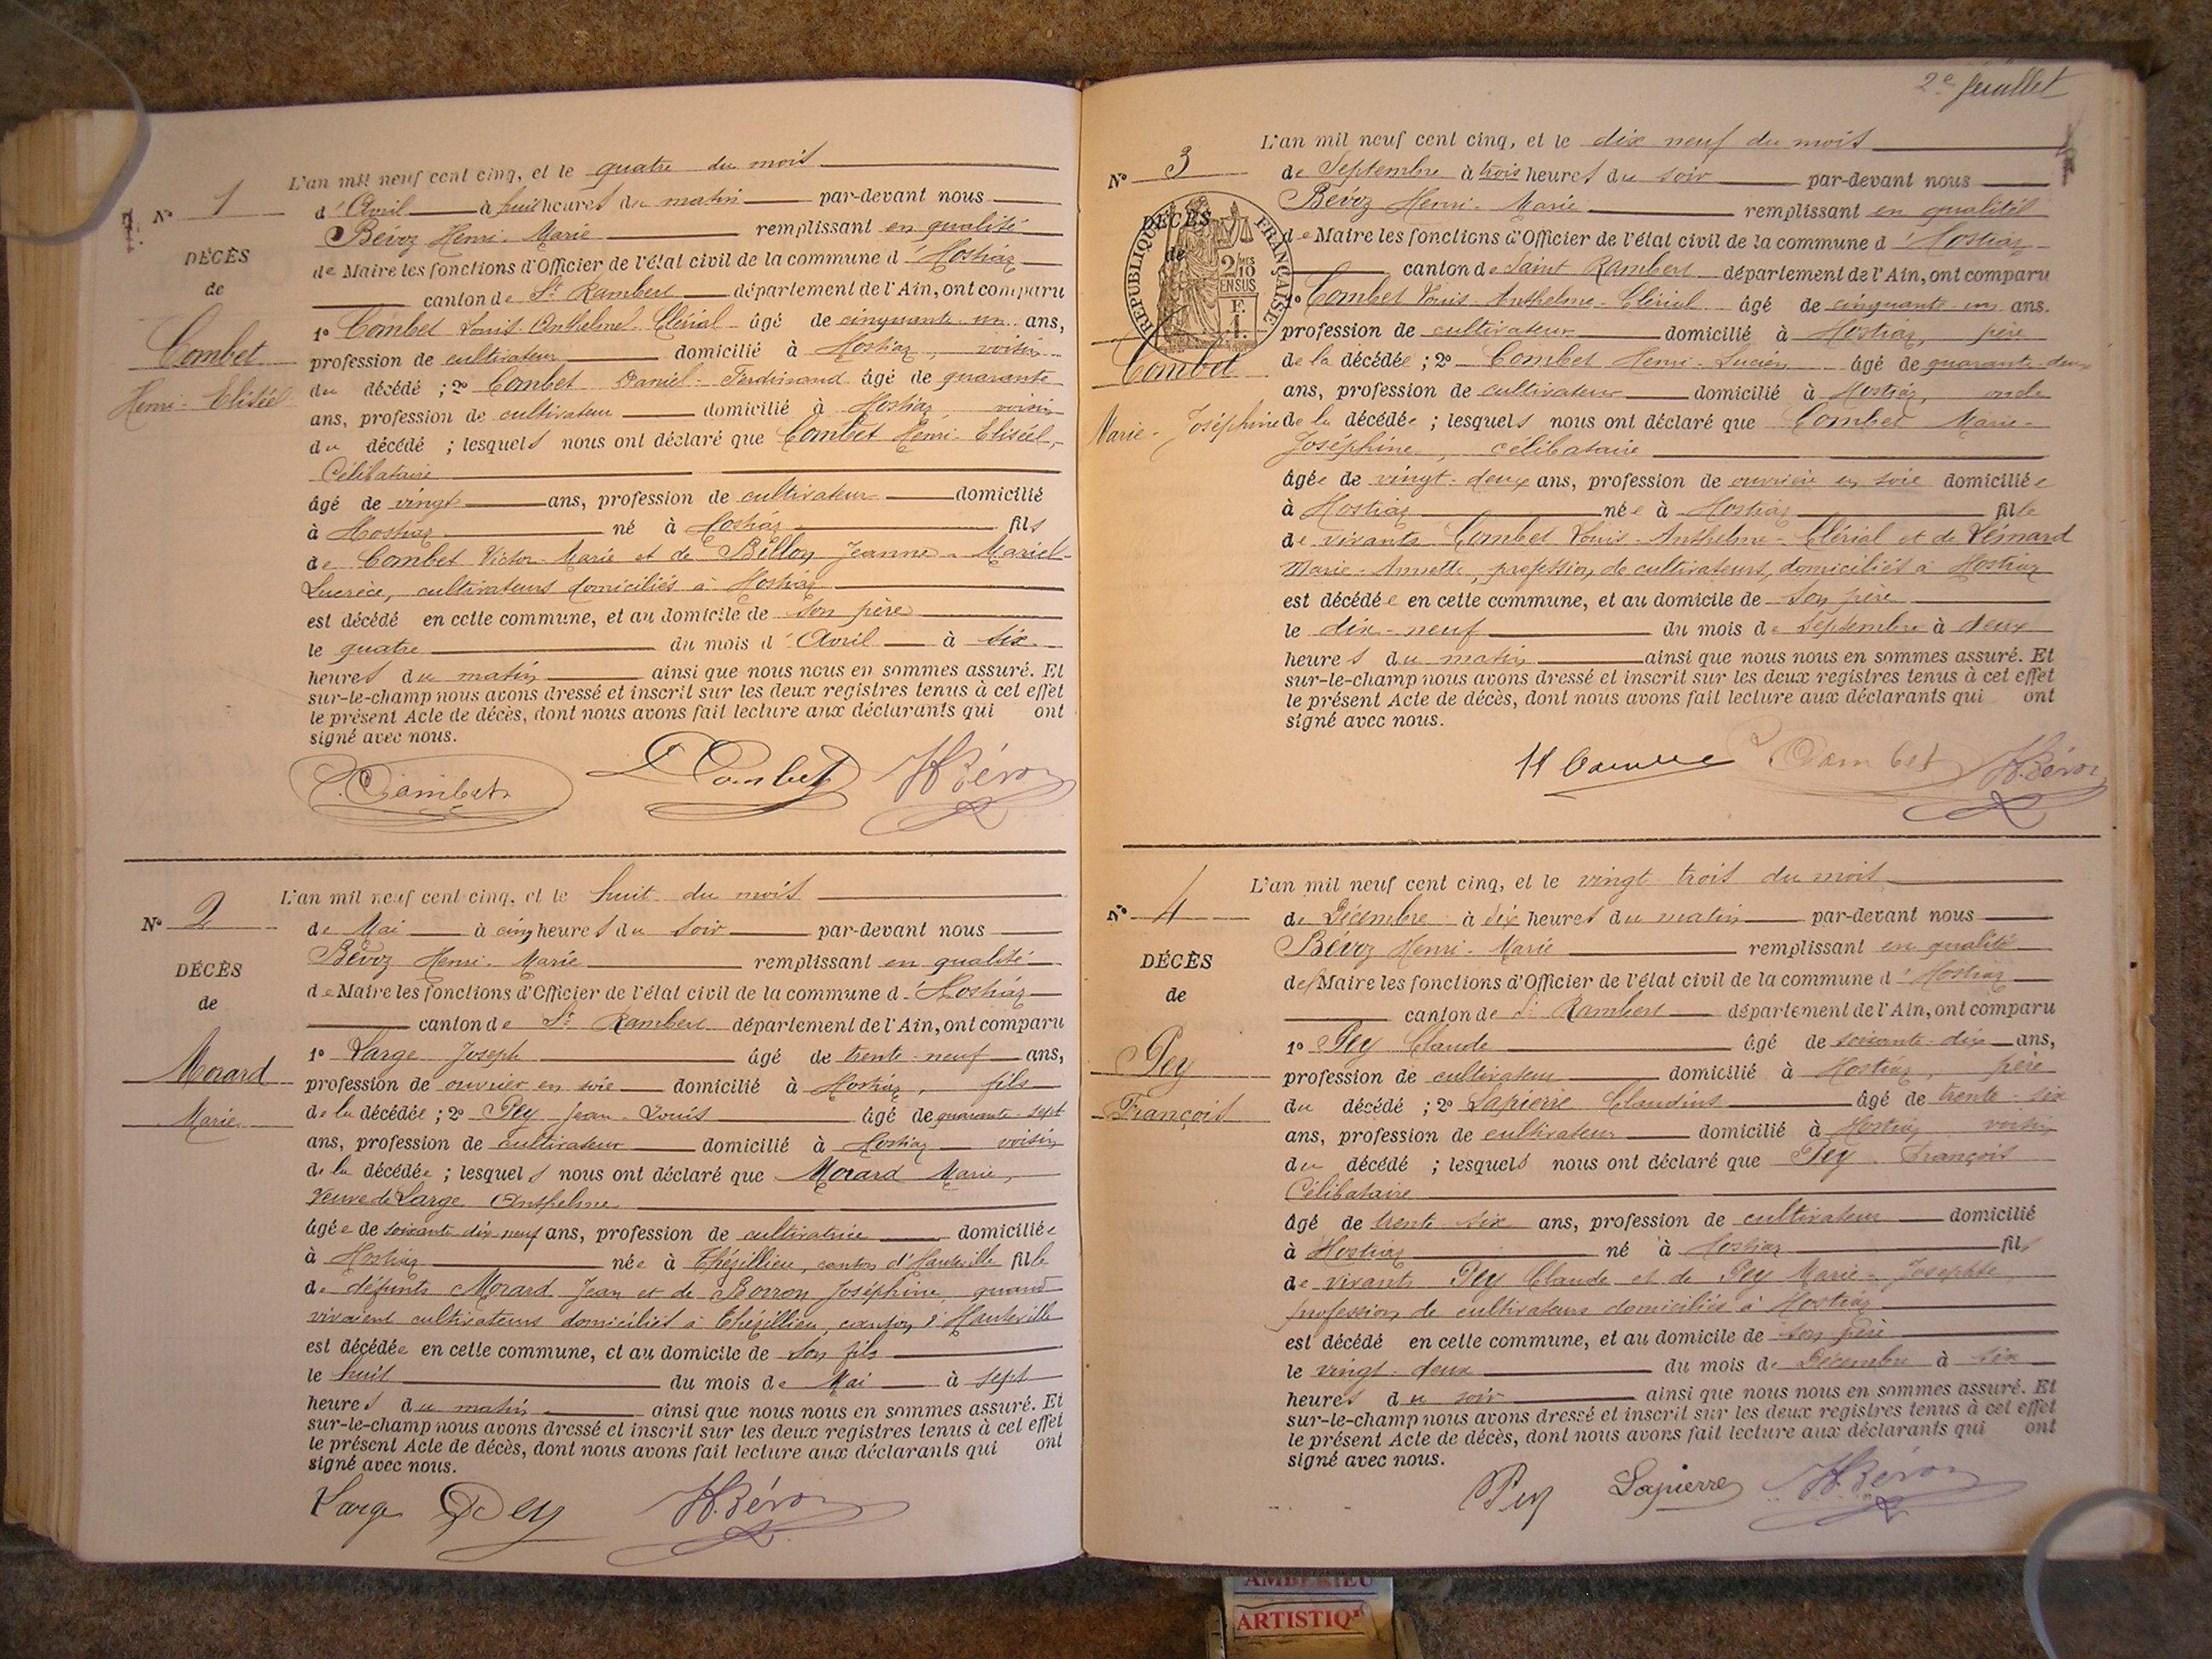 N° 1
DÉCÈS
de
Combet
Henri-Elisée
L'an mil neuf cent cinq, et le quatre du mois
d'Avril à huit heures du matin par-devant nous
Bévoz Henri-Marie remplissant en qualité
de Maire les fonctions d'Officier de l'état civil de la commune d'Hostiaz
canton de St Rambert département de l'Ain, ont comparu
1° Combet Louis-Anthelme-Clérial âgé de cinquante un ans,
profession de cultivateur domicilié à Hostiaz, voisin
du décédé ; 2° Combet Daniel-Ferdinand âgé de quarante
ans, profession de cultivateur domicilié à Hostiaz, voisin
du décédé ; lesquels nous ont déclaré que Combet Henri-Elisée,
Célibataire
âgé de vingt ans, profession de cultivateur domicilié
à Hostiaz né à Hostiaz fils
de Combet Victor-Marie et de Billon Jeanne-Marie-
Lucrèce, cultivateurs domiciliés à Hostiaz
est décédé en cette commune, et au domicile de son père
le quatre du mois d'Avril à six
heures du matin ainsi que nous nous en sommes assuré. Et
sur-le-champ nous avons dressé et inscrit sur les deux registres tenus à cet effet
le présent Acte de décès, dont nous avons fait lecture aux déclarants qui ont
signé avec nous.
Combet D Combet H. Bévoz
N° 2
DÉCÈS
de
Morard
Marie
L'an mil neuf cent cinq, et le huit du mois
de Mai à cinq heures du soir par-devant nous
Bévoz Henri-Marie remplissant en qualité
de Maire les fonctions d'Officier de l'état civil de la commune d'Hostiaz
canton de St Rambert département de l'Ain, ont comparu
1° Large Joseph âgé de trente-neuf ans,
profession de ouvrier en soie domicilié à Hostiaz, fils
de la décédée ; 2° Pey Jean-Louis âgé de quarante-sept
ans, profession de cultivateur domicilié à Hostiaz voisin
de la décédée ; lesquels nous ont déclaré que Morard Marie,
Veuve de Large Anthelme
âgée de soixante dix-neuf ans, profession de cultivatrice domiciliée
à Hostiaz née à Thézillieu, canton d'Hauteville fille
de défunts Morard Jean et de Borron Joséphine, quand
vivaient cultivateurs domiciliés à Thézillieu, canton d'Hauteville
est décédée en cette commune, et au domicile de son fils
le huit du mois de Mai à sept
heures du matin ainsi que nous nous en sommes assuré. Et
sur-le-champ nous avons dressé et inscrit sur les deux registres tenus à cet effet
le présent Acte de décès, dont nous avons fait lecture aux déclarants qui ont
signé avec nous.
Large Pey H. Bévoz
2e feuillet
N° 3
DÉCÈS
de
REPUBLIQUE FRANÇAISE
2/10 EN SUS
Combet
Marie-Joséphine
L'an mil neuf cent cinq, et le dix neuf du mois
de Septembre à trois heures du soir par-devant nous
Bévoz Henri-Marie remplissant en qualité
de Maire les fonctions d'Officier de l'état civil de la commune d'Hostiaz
canton de Saint Rambert département de l'Ain, ont comparu
1° Combet Louis-Anthelme-Clérial âgé de cinquante-un ans.
profession de cultivateur domicilié à Hostiaz, père
de la décédée ; 2° Combet Henri-Lucien âgé de quarante-deux
ans, profession de cultivateur domicilié à Hostiaz, oncle
de la décédée ; lesquels nous ont déclaré que Combet Marie-
Joséphine, célibataire
âgée de vingt-deux ans, profession de ouvrière en soie domiciliée
à Hostiaz née à Hostiaz fille
de vivants Combet Louis-Anthelme-Clérial et de Vésnard
Marie-Annette, profession de cultivateurs, domiciliés à Hostiaz
est décédée en cette commune, et au domicile de son père
le dix-neuf du mois de Septembre à deux
heures du matin ainsi que nous nous en sommes assuré. Et
sur-le-champ nous avons dressé et inscrit sur les deux registres tenus à cet effet
le présent Acte de décès, dont nous avons fait lecture aux déclarants qui ont
signé avec nous.
Combet H. Bévoz
N° 4
DÉCÈS
de
Pey
François
L'an mil neuf cent cinq, et le vingt trois du mois
de Décembre à dix heures du matin par-devant nous
Bévoz Henri-Marie remplissant en qualité
de Maire les fonctions d'Officier de l'état civil de la commune d'Hostiaz
canton de St Rambert département de l'Ain, ont comparu
1° Pey Claude âgé de soixante-dix ans,
profession de cultivateur domicilié à Hostiaz, père
du décédé ; 2° Lapierre Claudius âgé de trente-six
ans, profession de cultivateur domicilié à Hostiaz voisin
du décédé ; lesquels nous ont déclaré que Pey François
Célibataire
âgé de trente six ans, profession de cultivateur domicilié
à Hostiaz né à Hostiaz fils
de vivants Pey Claude et de Pey Marie-Josephte
profession de cultivateurs domiciliés à Hostiaz
est décédé en cette commune, et au domicile de son père
le vingt-deux du mois de Décembre à six
heures du soir ainsi que nous nous en sommes assuré. Et
sur-le-champ nous avons dressé et inscrit sur les deux registres tenus à cet effet
le présent Acte de décès, dont nous avons fait lecture aux déclarants qui ont
signé avec nous.
Pey Lapierre H. Bévoz
AMBERIEU
ARTISTIQ